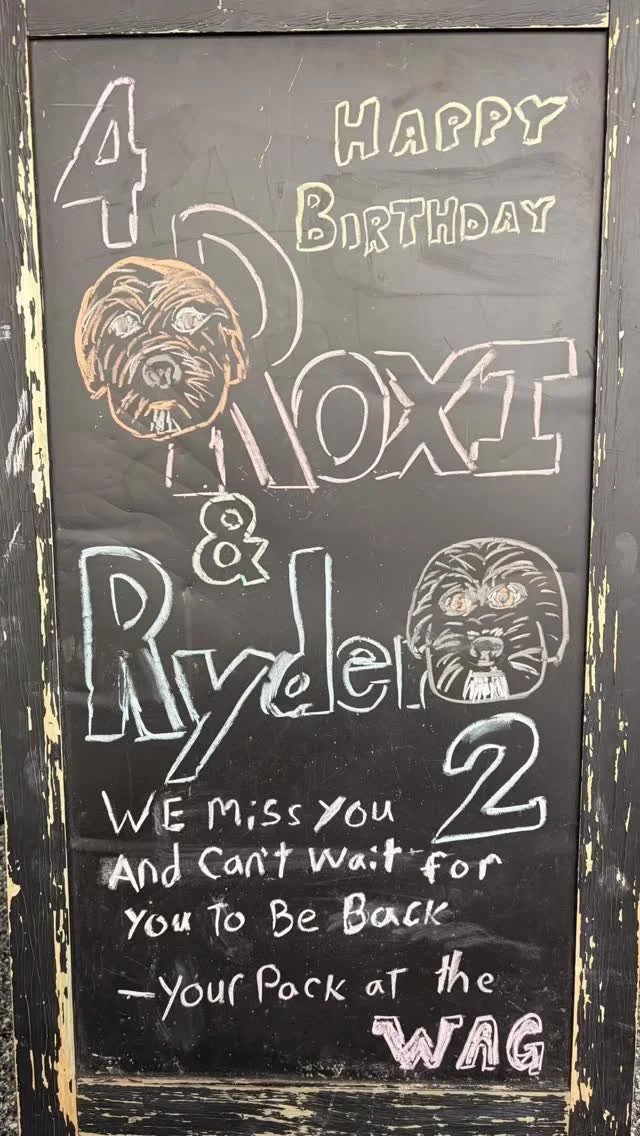 4
HAPPY
BIRTHDAY
ROXI
&
Ryder
2
WE Miss you
And Can't Wait for
You To Be Back
—Your Pack at the
WAG